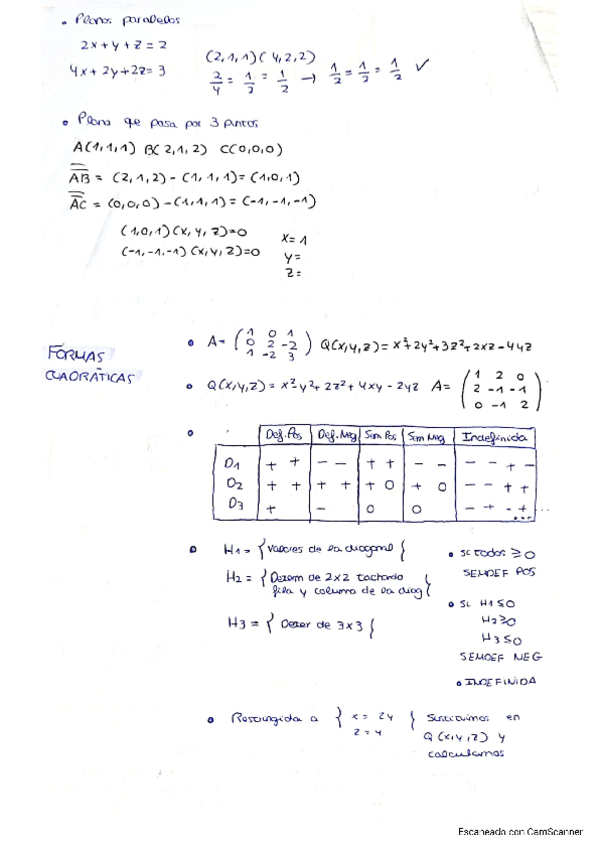 • Planos paralelos
2x + y + z = 2
4x + 2y + 2z = 3
(2,1,1) (4,2,2)
2/4 = 1/2 = 1/2 → 1/2 = 1/2 = 1/2 ✓
• Plano que pasa por 3 puntos
A(1,1,1) B(2,1,2) C(0,0,0)
AB = (2,1,2) - (1,1,1) = (1,0,1)
AC = (0,0,0) - (1,1,1) = (-1,-1,-1)
(1,0,1)(x,y,z)=0
(-1,-1,-1)(x,y,z)=0
x= 1
y=
z=
FORMAS
CUADRÁTICAS
• A= (1 0 1
0 2 -2
1 -2 3) Q(x,y,z) = x²+2y²+3z²+2xz-4yz
• Q(x,y,z) = x² y²+2z²+4xy-2yz A= (1 2 0
2 -1 -1
0 -1 2)
• Def.Pos Def.Neg Sem Pos Sem Neg Indefinida
D1 + + - - + + - - - - + -
D2 + + + + + 0 + 0 - - + +
D3 + - 0 0 - + - + ...
• H1 = { Valores de la diagonal {
H2 = { Determ de 2x2 tachando
fila y columna de la diag {
H3 = { Deter de 3x3 {
• Si todos ≥0
SEMDEF POS
• Si H1≤0
H2≥0
H3≤0
SEMDEF NEG
• INDEFINIDA
• Restringida a { x = 2y
z = y { Sustituimos en
Q(x,y,z) y
calculamos
Escaneado con CamScanner